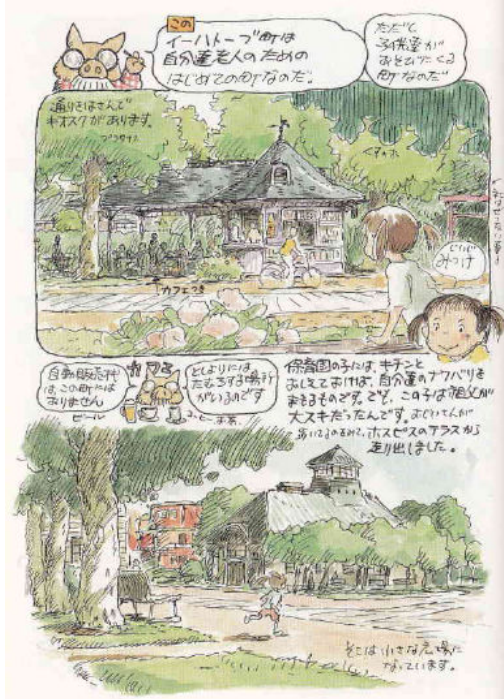 この
イーハトーブ町は
自分達老人のための
はじめての町なのだ。
ただし
子供達が
あそびにくる
町なのだ
通りをはさんで
キオスクがあります。
くすの木
じいじ
みつけ
カフェつき
自動販売機
はこの町には
ありません
ビール
としよりには
たむろする場所
がいるのです
保育園の子には、キチンと
おしえておけば、自分達のナワバリを
まもるものです。でも、この子は祖父が
大スキだったんです。おじいさんが
歩いてるのをみて、ホスピスのテラスから
走り出しました。
そこは小さな広場に
なっています。